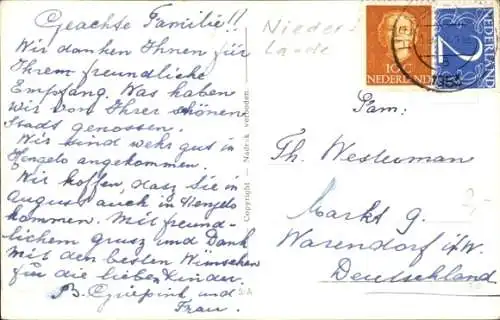 Geachte Familie!!
Wir danken Ihnen für
Ihrem freundliche
Empfang. Was haben
wir von Ihrer schönen
Stadt genossen.
Wir sind wehr gut in
Hengelo angekommen.
Wir hoffen, dasz Sie in
August auch in Hengelo
kommen. Mit freund-
lichem grusz und Dank
Mit den besten Wünschen
für die lieben Kinder.
und
Frau.
Copyright — Nadruk verboden.
Nieder-
lande
10C
NEDERLAND
2
NEDERLAND
Fam:
Th. Westerman
Markt 9.
Warendorf i/W.
Deutschland